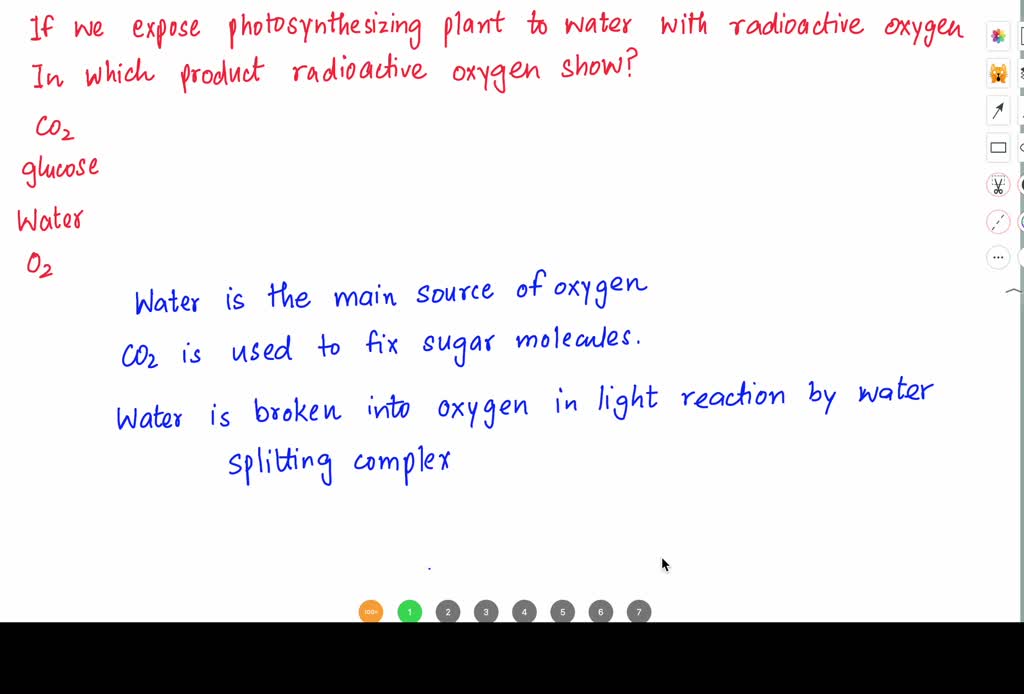 If we expose photosynthesizing plant to water with radioactive oxygen
In which product radioactive oxygen show?
CO2
glucose
Water
O2
Water is the main source of oxygen
CO2 is used to fix sugar molecules.
Water is broken into oxygen in light reaction by water
splitting complex
100+ 1 2 3 4 5 6 7